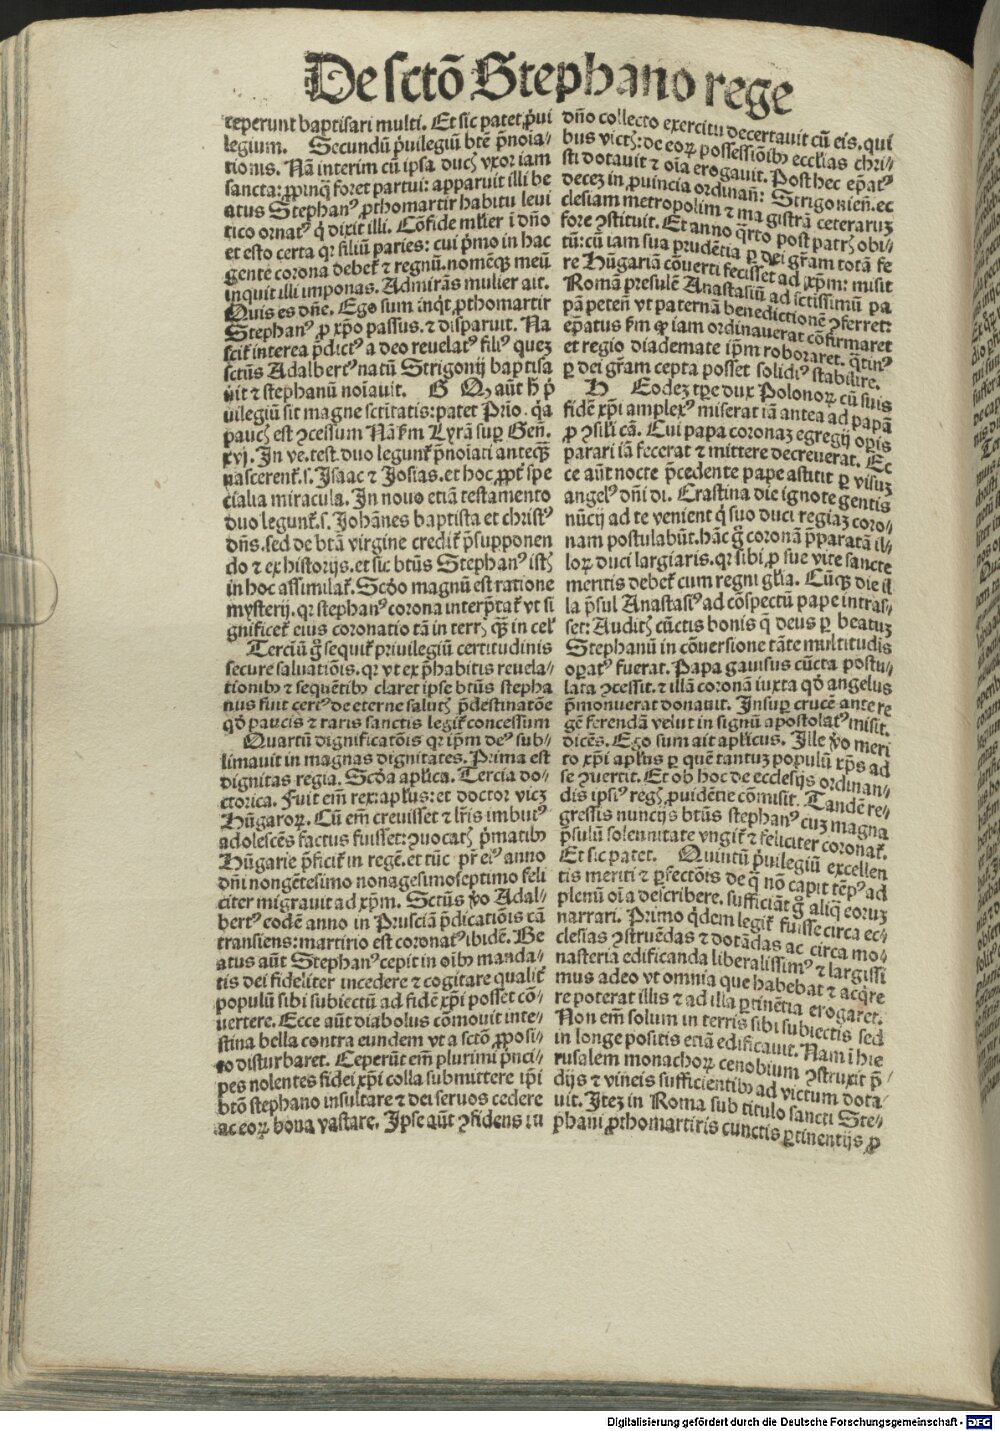 De sctō Stephano rege
ceperunt baptisari multi. Et sic patet p̄ui
legium. Secundū p̄uilegiū btē p̄noia⸗
tionis. Nā interim cū ipsa ducꝭ vxor iam
sancta: ꝓpinq̄ foret partui: apparuit illi be
atus Stephanꝰ ꝓthomartir habitu leui
tico ornatꝰ q̇ dixit illi. Cōfide mlier i dn̄o
et esto certa qꝛ filiū paries: cui p̄mo in hac
gente corona debet᷑ ⁊ regnū. nomēqꝫ meū
inquit illi imponas. Admirās mulier ait.
Quis es dn̄e. Ego sum inq̇t ꝓthomartir
Stephanꝰ ꝓ xp̄o passus. ⁊ disparuit. Na
scit᷑ interea p̄dictꝰ a deo reuelatꝰ filiꝰ quez
sctūs Adalbertꝰ natū Strigonij baptisa
uit ⁊ stephanū noīauit. G Qꝫ aūt h̄ p̄
uilegiū sit magne sctitatis: patet Prīo. q̇a
paucꝭ est ꝯcessum Nā ẜm Lyrā suꝑ Geñ.
xvj. In ve. test. duo legunt᷑ p̄noīati anteqꝫ̄
nascerent᷑. s. Isaac ⁊ Josias. et hoc ꝓpt̄ spe
cialia miracula. In nouo etiā testamento
duo legunt᷑. s. Johānes baptista et christꝰ
dn̄s. sed de btā virgine credit᷑ p̄supponen
do ⁊ ex historijs. et sic btūs Stephanꝰ istꝭ
in hoc assimilat᷑. Scḋo magnū est ratione
mysterij. qꝛ stephanꝰ corona interp̄tat᷑ vt si
gnificet᷑ eius coronatio tā in terrꝭ qꝫ̄ in cel᷑
Terciū g̊ sequit᷑ priuilegiū certitudinis
secure saluatiōis. qꝛ vt ex p̄habitis reuela⸗
tionibꝰ ⁊ sequētibꝰ claret ipse btūs stepha
nus fuit certꝰ de eterne salutꝭ p̄destinatōe
qḋ paucis ⁊ raris sanctis legit᷑ concessum
Quartū dignificatōis qꝛ ip̄m deꝰ sub⸗
limauit in magnas dignitates. Prima est
dignitas regia. Scḋa aplica. Tercia do⸗
ctorica. Fuit em̄ rex: apl̄us: et doctor vicꝫ
Hūgaroꝝ. Cū em̄ creuisset ⁊ lr̄is imbutꝰ
adolescēs factus fuisset: ꝯuocatꝭ p̄matibꝰ
Hūgarie p̄ficit᷑ in regē. et tūc pr̄ eiꝰ anno
dn̄i nongētesimo nonagesimoseptimo feli
citer migrauit ad xp̄m. Sctūs v̊o Adal⸗
bertꝰ eodē anno in Prusciā p̄dicatiōis cā
transiens: martirio est coronatꝰ ibidē. Be
atus aūt Stephanꝰ cepit in oībꝰ manda⸗
tis dei fideliter incedere ⁊ cogitare qualit᷑
populū sibi subiectū ad fidē xp̄i posset cō⸗
uertere. Ecce aūt diabolus cōmouit inte⸗
stina bella contra eundem vt a sctō ꝓposi⸗
to disturbaret. Ceperūt em̄ plurimi p̄nci⸗
pes nolentes fidei xp̄i colla submittere ip̄i
btō stephano insultare ⁊ dei seruos cedere
ac eoꝝ bona vastare. Ipse aūt ꝯfidens in
dn̄o collecto exercitu decertauit cū eis. qui
bus victꝭ: de eoꝝ possessiōibꝰ eccl̄ias chri⸗
sti dotauit ⁊ oīa erogauit. Post hec ep̄atꝰ
decez in ꝓuincia ordinañ: Strigonieñ. ec
clesiam metropolim ⁊ magistrā ceteraruꝫ
fore ꝯstituit. Et anno q̊rto post patrꝭ obi⸗
tū: cū iam sua prudētia ꝑ dei gr̄am totā fe
re Hūgariā cōuerti fecisset ad xp̄m: misit
Romā presulē Anastasiū ad sctissimū pa
pā peteñ vt paternā benedictionē ꝯferret:
ep̄atus ẜm qꝫ iam ordinauerat cōfirmaret
et regio diademate ip̄m roboraret. q̊tinꝰ
ꝑ dei gr̄am cepta posset solidiꝰ stabilire.
H Eodez tꝑe dux Polonoꝝ cū suis
fidē xp̄i amplexꝰ miserat iā antea ad papā
ꝓ ꝯsili cā. Cui papa coronaꝫ egregij oꝑis
parari iā fecerat ⁊ mittere decreuerat. Ec
ce aūt nocte p̄cedente pape astitit ꝑ visuꝫ
angelꝰ dn̄i dī. Crastina die ignote gentis
nūcij ad te venient q̇ suo duci regiaꝫ coro⸗
nam postulabūt. hāc g̊ coronā p̄paratā il⸗
loꝝ duci largiaris. qꝛ sibi ꝓ sue vite sancte
meritis debet᷑ cum regni gl̄ia. Cūqꝫ die il
la p̄sul Anastasiꝰ ad cōspectū pape intras⸗
set: Auditꝭ cūctis bonis q̄ deus ꝑ beatuꝫ
Stephanū in cōuersione tāte multitudis
oꝑatꝰ fuerat. Papa gauisus cūcta postu⸗
lata ꝯcessit. ⁊ illā coronā iuxta qḋ angelus
p̄monuerat donauit. Insuꝑ crucē ante re
gē ferendā velut in signū apostolatꝰ misit.
dicēs. Ego sum ait apl̄icus. Ille v̊o meri
to xp̄i apl̄us ꝑ quē tantuꝫ populū xp̄s ad
se ꝯuertit. Et ob hoc de ecclesijs ordinan⸗
dis ipsiꝰ regꝭ ꝓuidētie cōmisit. Tandē re⸗
gressis nuncijs btūs stephanꝰ cuꝫ magna
p̄sulū solennitate vngit᷑ ⁊ feliciter coronat᷑.
Et sic patet. Quintū p̄uilegiū excellen
tis meriti ⁊ ꝑfectōis de q̇ nō capit tēpꝰ ad
plenū oīa describere. sufficiāt g̊ aliq̄ eoruꝫ
narrari. Primo q̇dem legit᷑ fuisse circa ec⸗
clesias ꝯstruēdas ⁊ dotādas ac circa mo⸗
nasteria edificanda liberalissimꝰ ⁊ largissi
mus adeo vt omnia que habebat ⁊ acq̇re
re poterat illis ⁊ ad illa ꝑtinētia erogaret.
Non em̄ solum in terris sibi subiectis sed
in longe positis etiā edificauit. Nam ī hie
rusalem monachoꝝ cenobium ꝯstruxit p̄⸗
dijs ⁊ vineis sufficientibꝰ ad victum dota⸗
uit. Itez in Roma sub titulo sancti Ste⸗
phani ꝓthomartiris cunctis ꝑtinentijs ꝓ
Digitalisierung gefördert durch die Deutsche Forschungsgemeinschaft - DFG